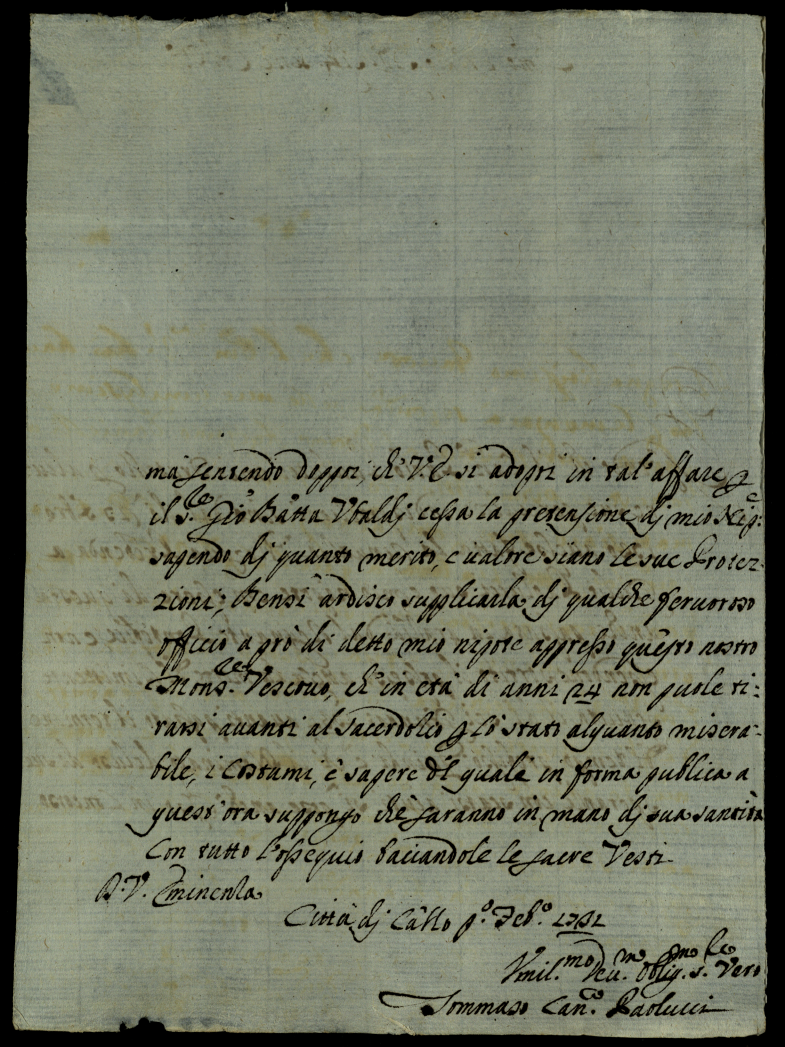 ma sentendo doppoi, ch'V.E. si adopri in tal'affare p
il S.re Gio Batta Vbaldj cessa la pretensione dj mio Nip.e
sapendo dj quanto merito, e ualore siano le sue Protez-
zioni; Bensì ardisco supplicarla dj qualche feruoroso
officio a prò di detto mio nipote appresso questo nostro
Mons.re Vescouo, ch'in età di anni 24 non puole ti:
rarsi auanti al sacerdotio p lo stato alquanto misera-
bile, i costumi, e sapere del quale in forma publica a
quest'ora suppongo che saranno in mano dj sua santità
Con tutto l'ossequio baciandole le sacre Vesti
D. V. Eminenza
Città dj Castello p.o Feb.o
Vmil.mo Deu.mo Oblig.mo s.re Vero
Tommaso Can.co Paolucci